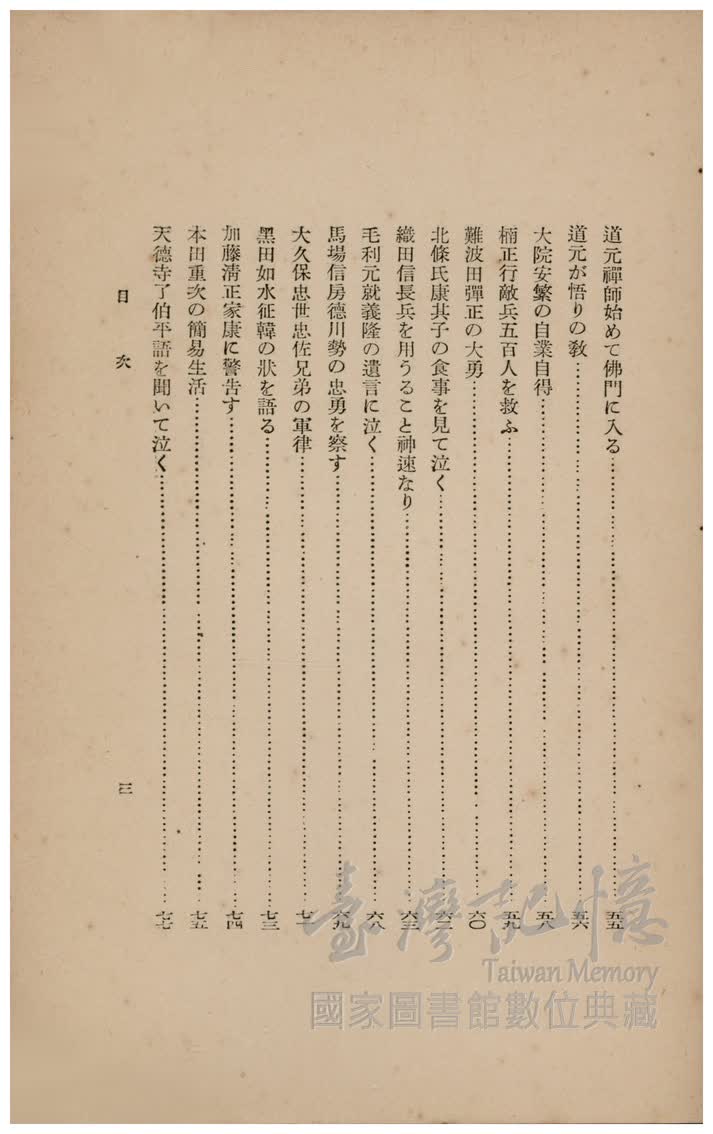 道元禪師始めて佛門に入る……五五
道元が悟りの敎……五六
大院安繁の自業自得……五八
楠正行敵兵五百人を救ふ……五九
難波田彈正の大勇……六〇
北條氏康其子の食事を見て泣く……六二
織田信長兵を用うること神速なり……六三
毛利元就義隆の遺言に泣く……六八
馬場信房德川勢の忠勇を察す……六九
大久保忠世忠佐兄弟の軍律……七一
黑田如水征韓の狀を語る……七三
加藤淸正家康に警告す……七四
本田重次の簡易生活……七五
天德寺了伯平語を聞いて泣く……七七
目次
三
臺灣記憶
Taiwan Memory
國家圖書館數位典藏